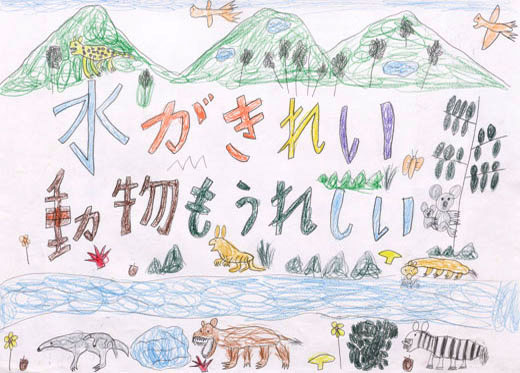 水がきれい
動物もうれしい